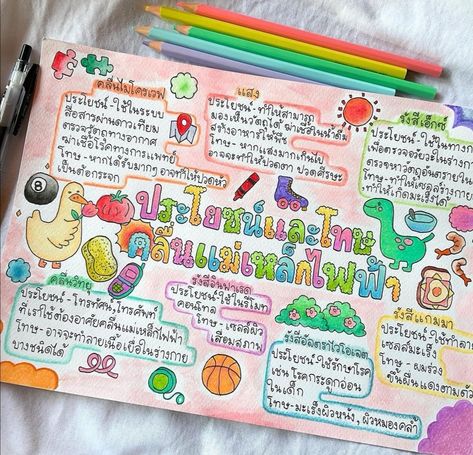 คลื่นไมโครเวฟ
ประโยชน์ - ใช้ในระบบ
สื่อสารผ่านดาวเทียม
ตรวจวัตถุทางอากาศ
ฆ่าเชื้อโรคทางการแพทย์
โทษ - หากได้รับมากๆ อาจทำให้ปวดหัว
เป็นต้อกระจก
แสง
ประโยชน์ - ทำให้สามารถ
มองเห็นวัตถุได้ ฆ่าเชื้อในน้ำดื่ม
สร้างอาหารให้พืช
โทษ - หากแสงมากเกินไป
อาจจะทำให้ปวดตา ปวดศีรษะ
รังสีเอ็กซ์
ประโยชน์ - ใช้ในทาง
เพื่อตรวจอวัยวะในร่าง
ตรวจหาวัตถุอันตรายใน
โทษ - ทำให้เซลล์ร่าง
ทำให้เกิดมะเร็งได้
ประโยชน์และโทษ
คลื่นแม่เหล็กไฟฟ้า
คลื่นวิทยุ
ประโยชน์ - โทรทัศน์, โทรศัพท์
ที่เราใช้ต้องอาศัยคลื่นแม่เหล็กไฟฟ้า
โทษ - อาจจะทำลายเนื้อเยื่อในร่างกาย
บางชนิดได้
รังสีอินฟาเรด
ประโยชน์ - ใช้ในรีโมท
คอนโทล
โทษ - เซลล์ผิว
เสื่อมสภาพ
รังสีอัลตราไวโอเลต
ประโยชน์ - ใช้รักษาโรค
เช่น โรคกระดูกอ่อน
ในเด็ก
โทษ - มะเร็งผิวหนัง, ผิวหมองคล้ำ
รังสีแกมมา
ประโยชน์ - ใช้ทำลาย
เซลล์มะเร็ง
โทษ - ผมร่วง
ผื่นขึ้นแดงตามตัว
8